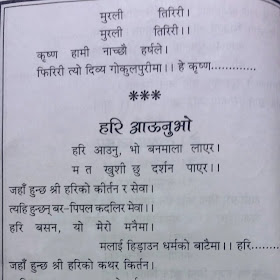 मुरली तिरिरी।
मुरली तिरिरी।।
कृष्ण हामी नाच्छौ हर्षले।
फिरिरी त्यो दिव्य गोकुलपुरीमा।। हे कृष्ण.............
***
हरि आऊनुभो
हरि आउनु, भो बनमाला लाएर।
म त खुशी छु दर्शन पाएर।।
जहाँ हुन्छ श्री हरिको कीर्तन र सेवा।
त्यहि हुन्छन् बर-पिपल कदलिर मेवा।।
हरि बसन, यो मेरो मनैमा।
मलाई हिड़ाउन धर्मको बाटैमा।। हरि........
जहाँ हुन्छ श्री हरिको कथर किर्तन।